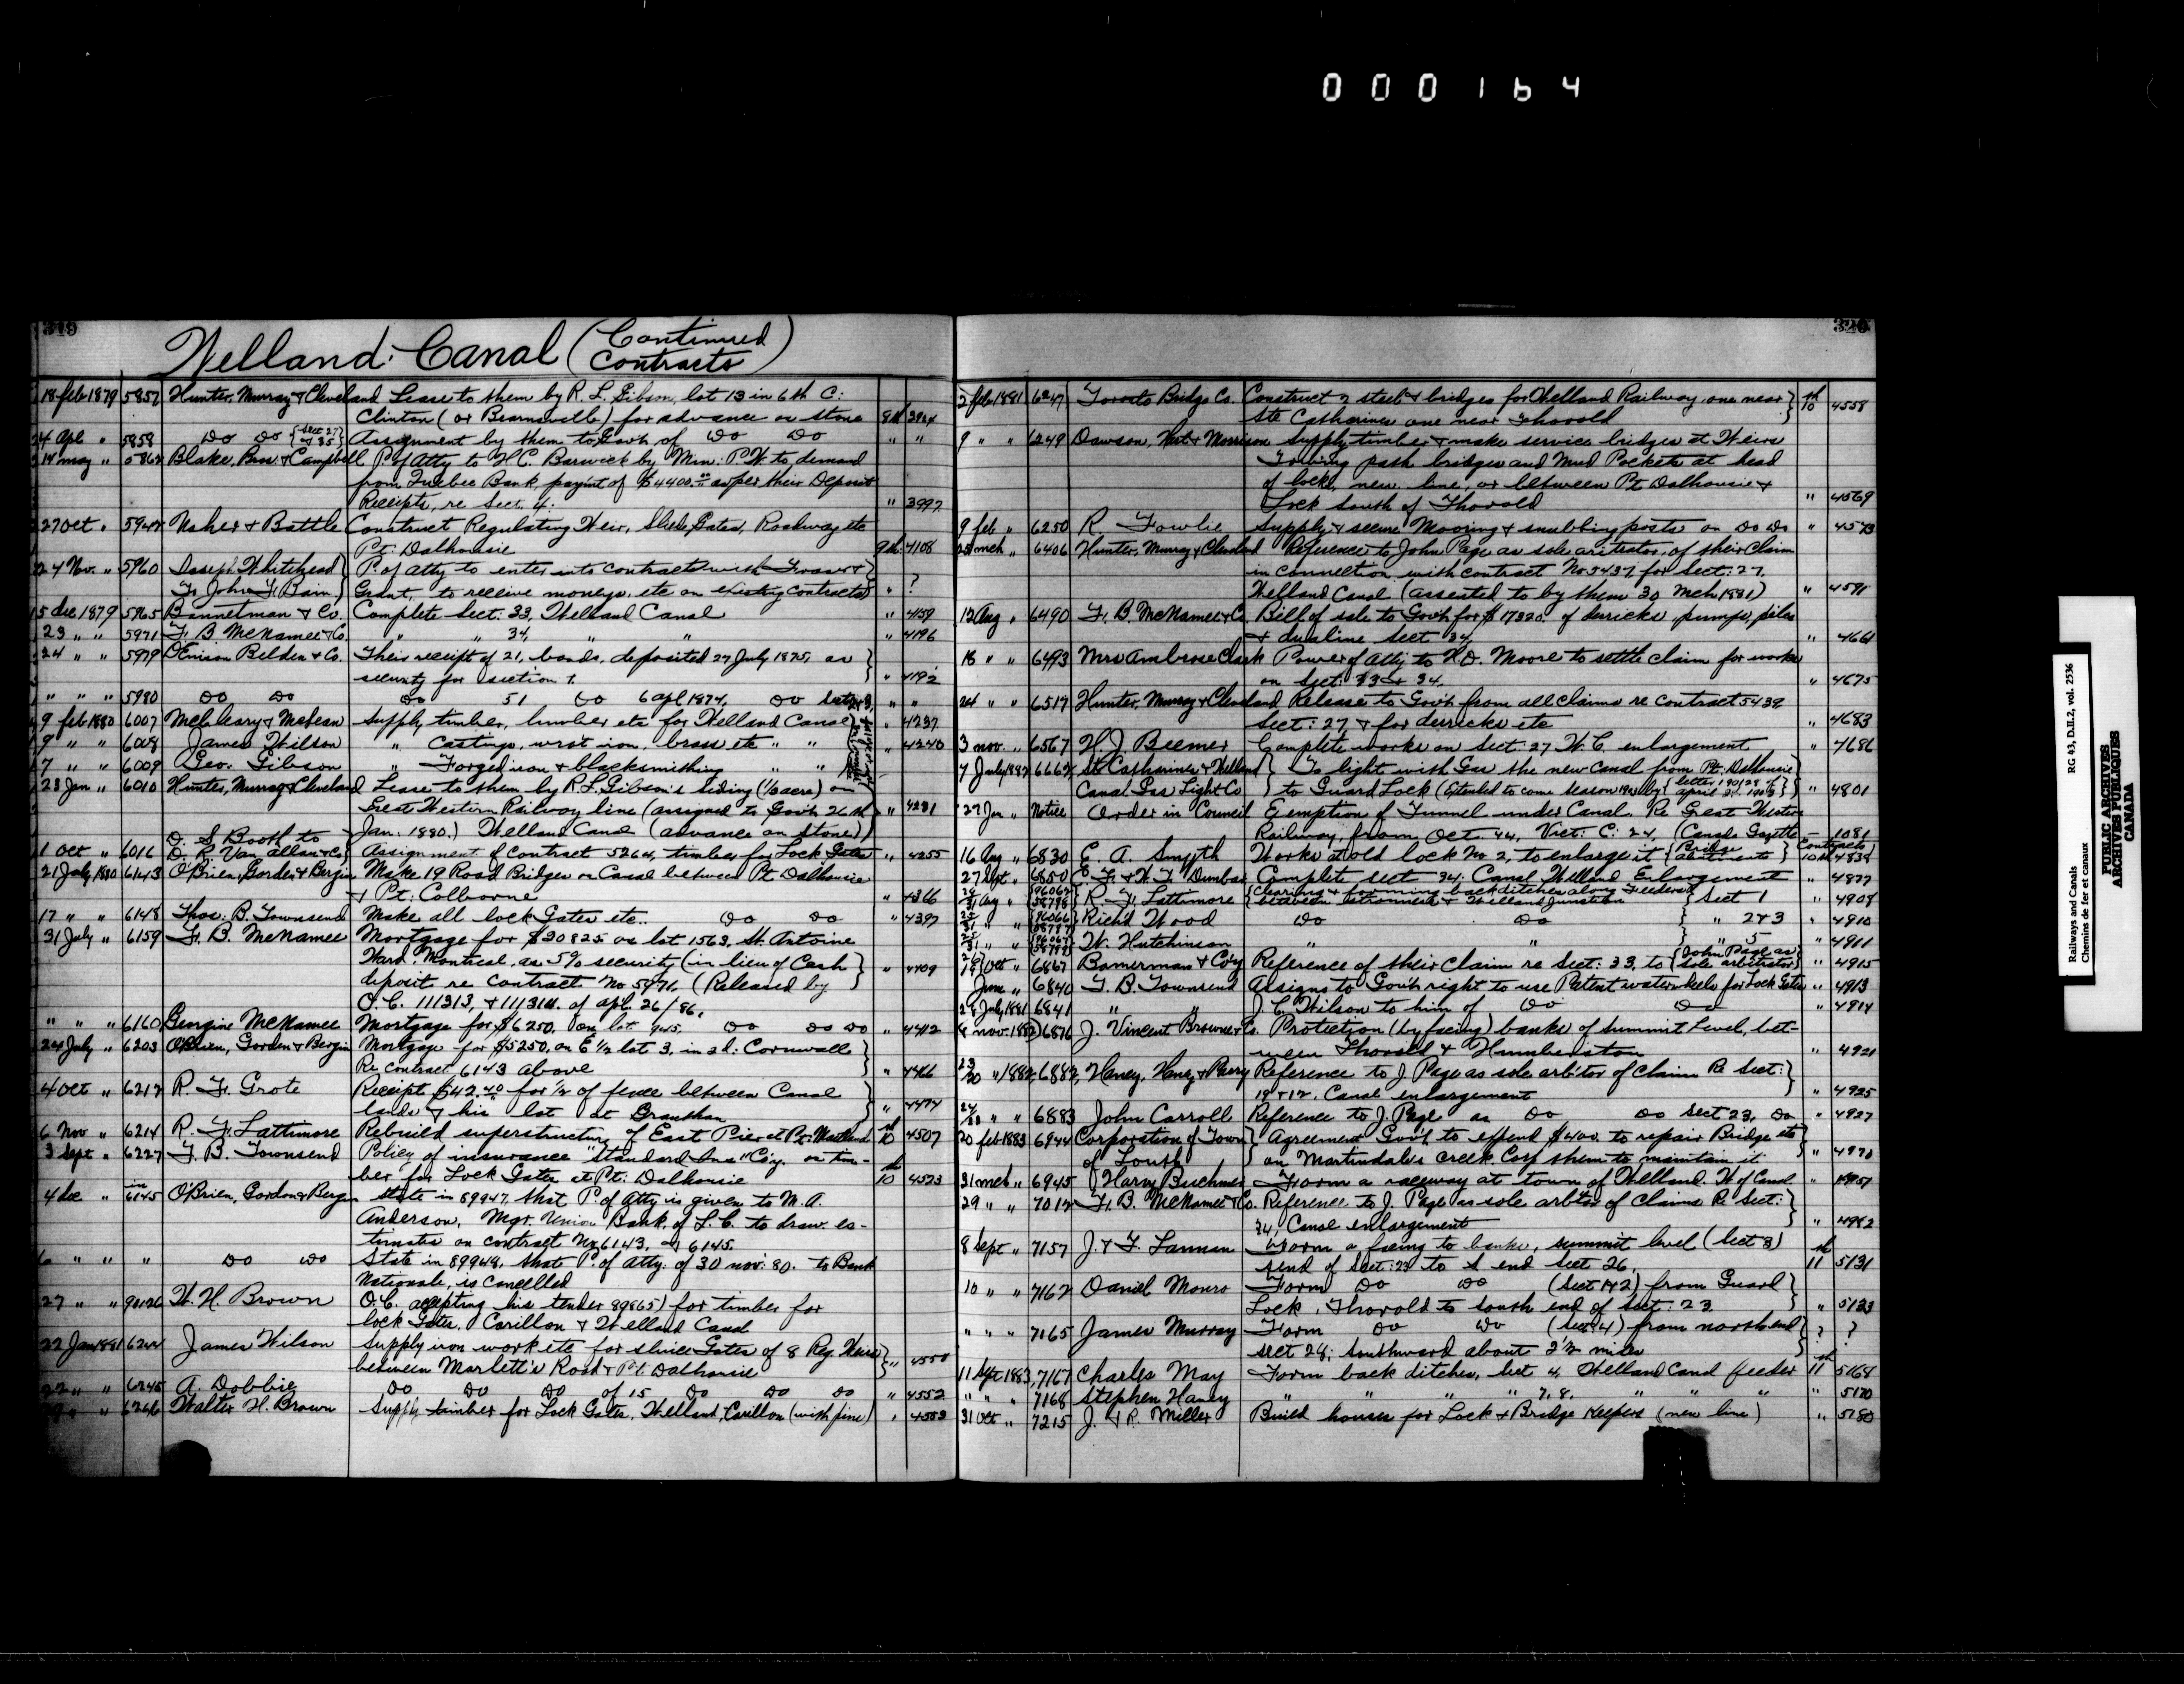 000164
319
Welland Canal (Continued Contracts)
18 feb 1879 5857 Hunter, Murray & Cleveland Lease to them by R. L. Gibson, lot 13 in 6th C:
Clinton (or Beamsville) for advance on stone 8th 3984
24 Apl " 5858 Do Do {Sect 27 & 35} Assignment by them to Gov't. of Do Do " "
14 may " 5862 Blake, Bros & Campbell P. of Atty to H.C. Barwick by Min: P.W. to demand
from Quebec Bank, paym't of $4400.00 as per their Deposit
Receipts, re Sect. 4. " 3997
27 Oct " 5944 Maher & Battle Construct Regulating Weir, Slide Gates, Roadway etc
Pt: Dalhousie 9th 4108
24 Nov. " 5960 Joseph Whitehead P. of atty to enter into contracts with Fraser &
To John F. Bain Grant, to receive moneys, etc on existing contracts " ?
15 Dec 1879 5965 Bannerman & Co. Complete Sect. 33, Welland Canal " 4159
23 " " 5971 F. B McNamee & Co. " " 34, " " " 4196
24 " " 5979 Denison Belden & Co. Their receipt of 21, bonds, deposited 27 July 1875, as
security for section 1. " 4192
" " " 5980 Do Do Do 51 Do 6 apl 1874, Do Sect 2 & 3, " "
9 feb 1880 6007 McCleary & McLean Supply timber, lumber etc for Welland Canal " 4237
9 " " 6008 James Wilson " Castings, wrot iron, brass etc " " " 4240
7 " " 6009 Geo. Gibson " Forged iron & blacksmithing " "
23 Jan " 6010 Hunter, Murray & Cleveland Lease to them by R. L. Gibson's siding (1/3 acre) on
Great Western Railway line (assigned to Gov't 26th " 4231
Jan: 1880.) Welland Canal (advance on stone)
D. S Booth to
1 Oct " 6016 D. R. Van Allan & Co. Assignment of Contract 5264, timber for Lock Gates " 4255
21 July 1880 6143 O'Brien, Gorden & Bergin Make 19 Road Bridges on Canal between Pt. Dalhousie
& Pt: Colborne " 4366
17 " " 6148 Thos: B. Townsend Make all lock Gates etc.. Do Do " 4397
31 July " 6159 F. B. McNamee Mortgage for $30825 on lot 1563, St. Antoine
Ward. Montreal, as 5% security (in lieu of Cash
deposit re contract No 5971. (Released by " 4409
O.C. 111313, & 111314. of apl. 26/86.
" " " 6160 Georgine McNamee Mortgage for $6250. on lot 945. Do Do Do " 4412
24 July " 6203 O'Brien, Gorden & Bergin Mortgage for $5250. on E 1/2 lot 3, in 2d: Cornwall
Re contract 6143 above " 4466
4 Oct " 6212 R. F. Grote Receipt $42.40 for 1/2 of fence between Canal
lands & his lot at Grantham " 4474
6 Nov " 6214 R. F. Lattimore Rebuild superstructure of East Pier at Pt. Maitland 10th 4507
3 Sept " 6227 T. B. Townsend Policy of insurance "Standard Ins" Co'y. on tim-
ber for Lock Gates at Pt: Dalhousie 10th 4523
4 Dec " in 6145 O'Brien, Gordon & Bergin State in 89947, that P. of Atty is given to M. A.
Anderson, Mgr. Union Bank of L. C. to draw es-
timates on contract No 6143, & 6145.
6 " " " Do Do State in 89948, that P. of Atty. of 30 nov: 80. to Bank
Nationale, is Cancelled
27 " " 90126 W. H. Brown O.C. accepting his tender 89865) for timber for
lock Gates. Carillon & Welland Canal
22 Jan 1881 6244 James Wilson Supply iron work etc for sluice Gates of 8 Reg. Weirs
between Marlett's Road & Pt. Dalhousie " 4550
22 " " 6245 A. Dobbie Do Do Do of 15 Do Do Do " 4552
" " 6246 Walter H. Brown Supply timber for Lock Gates, Welland, Carillon (with pine) " 4553
320
2 feb 1881 6247 Toronto Bridge Co. Construct 2 steel bridges for Welland Railway, one near
Ste Catharines one near Thorold 10th 4558
9 " " 6249 Dawson, Hurt & Morrison Supply timber & make service bridges at Weirs
Towing path bridges and Mud Pockets at head
of locks, new line, or between Pt Dalhousie &
Lock South of Thorold " 4569
9 feb " 6250 R Fowlie Supply & secure Mooring & snubbing posts on Do Do " 4573
23 mch " 6406 Hunter, Murray & Cleveland Reference to John Page as sole arbitrator, of their Claim
in connection with contract No 5437 for Sect: 27.
Welland Canal (assented to by them 30 Mch 1881) " 4591
12 Aug " 6490 F. B. McNamee & Co Bill of sale to Gov't for $17320. of derricks, pumps, piles
& dualine Sect 34, " 4661
18 " " 6493 Mrs Ambrose Clark Power of Atty to H.D. Moore to settle claim for works
on Sect: 33 & 34. " 4675
24 " " 6519 Hunter, Murray & Cleveland Release to Gov't from all claims re contract 5439
Sect: 27 & for derricks etc " 4683
3 nov. " 6567 H. J. Beemer Complete works on Sect: 27 W. C. enlargement " 4686
7 July 1882 6662 St Catharines & Welland Canal Gas Light Co To light with Gas the new Canal from Pt. Dalhousie
to Guard Lock (Extended to come season 1903 by {letter 190128 of april 21. 1903}) " 4801
27 Jan " Notice Order in Council Exemption of Tunnel under Canal. Re Great Western
Railway, from Oct 44, Vict: C: 24 (Canada Gazette - 1081
16 Aug " 6830 E. A. Smyth Works at old lock No 2, to enlarge it {Bridge abutments} Contracts 10th 4839
27 Sept " 6850 E. F. & W. F. Dunbar Complete sect 34: Canal Welland Enlargement " 4877
24/31 Aug " {96062 58798} R. F. Lattimore {Clearing & forming back ditches along Feeder between Stromness & Welland Junction} Sect 1 " 4908
25/31 " " {96066 58797} Rich'd Wood Do Do " 2 & 3 " 4910
25/31 " " {96067 58799} W. Hutchinson " " " 5 " 4911
19 Oct " 6867 Bannerman & Coy Reference of their Claim re Sect: 33, to {John Page as sole arbitrator} " 4915
June " 6840 T. B. Townsend Assigns to Gov't right to use Patent water keels for Lock Gates " 4913
28 July 1881 6841 " " J. C. Wilson to him of Do Do " 4914
4 nov. 1882 6876 J. Vincent Browne & Co. Protection (by facing) banks of Summit Level, bet-
ween Thorold & Humberston " 4921
23/20 " 1882 6882 Haney, Haney & Parry Reference to J Page as sole arb'tor of Claim Re Sect:
19 & 12. Canal enlargement " 4925
24/23 " " 6883 John Carroll Reference to J. Page as Do Do Sect 23. Do " 4927
20 feb 1883 6944 Corporation of Town of Louth Agreement Gov't, to expend $400. to repair Bridge etc
on Martindale's Creek. Corp them to maintain it " 4970
31 mch " 6945 Harry Buchner Form a raceway at town of Welland. W of Canal " 4957
29 " " 7012 F. B. McNamee & Co. Reference to J. Page as sole arb'tor of Claims Re Sect:
34, Canal enlargement " 4982
8 Sept " 7157 J. & F. Lannan Form a facing to banks, summit level (Sect 3)
send of Sect: 23 to S end Sect 26. 11th 5131
10 " " 7162 Daniel Monro Form Do Do (Sect 1 & 2) from Guard
Lock, Thorold to south end of Sect: 23. " 5133
" " " 7165 James Murray Form Do Do (Sect 4) from north end
Sect 28; Southward about 2 1/2 miles ? ?
11 Sept 1883 7167 Charles May Form back ditches, Sect 4, Welland Canal feeder 11th 5168
" " " 7168 Stephen Haney " " " " 7, 8. " " " " 5170
31 Oct " 7215 J. & R. Miller Build houses for Lock & Bridge Keepers (new line) " 5180
Railways and Canals RG 43, D.III.2, vol. 2536
Chemins de fer et canaux
PUBLIC ARCHIVES
ARCHIVES PUBLIQUES
CANADA